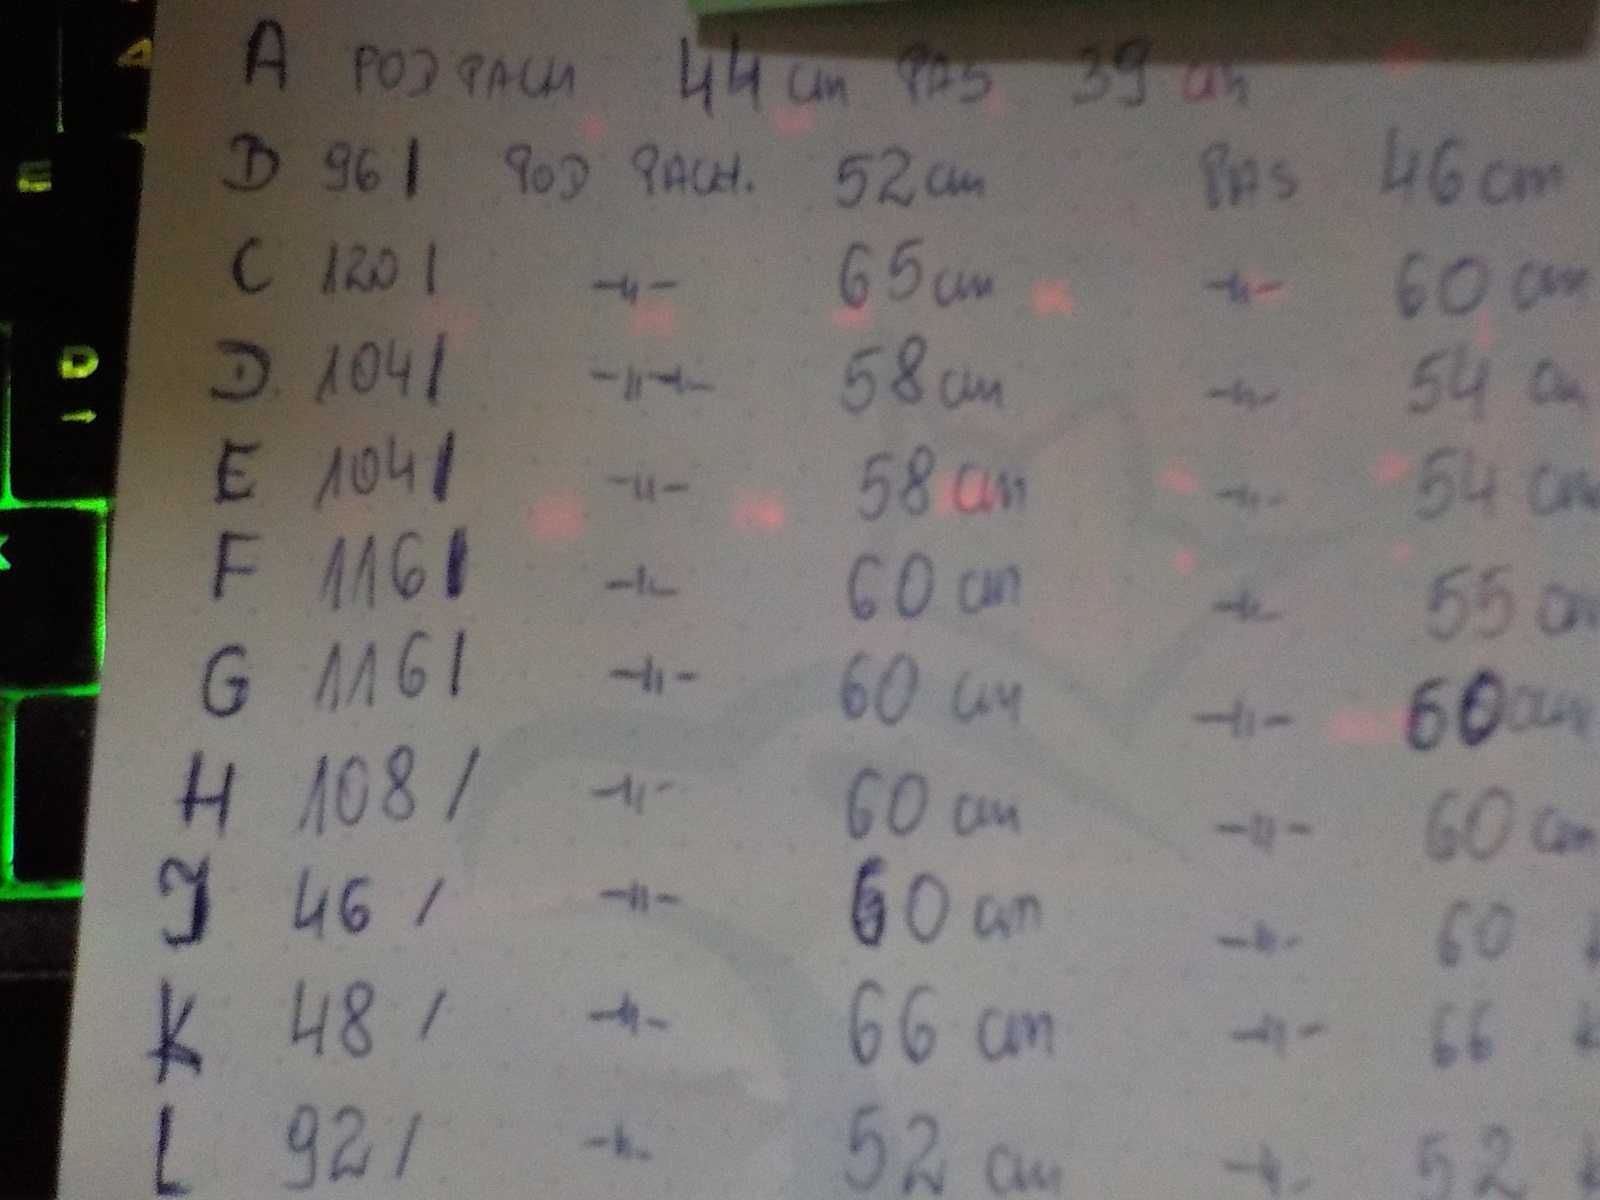 A POD PACH 44 cm PAS 39 cm
B 96 / POD PACH. 52 cm PAS 46 cm
C 120 / -||- 65 cm -||- 60 cm
D 104 / -||- 58 cm -||- 54 cm
E 104 / -||- 58 cm -||- 54 cm
F 116 / -||- 60 cm -||- 55 cm
G 116 / -||- 60 cm -||- 60 cm
H 108 / -||- 60 cm -||- 60 cm
J 46 / -||- 60 cm -||- 60
K 48 / -||- 66 cm -||- 66
L 92 / -||- 52 cm -||- 52